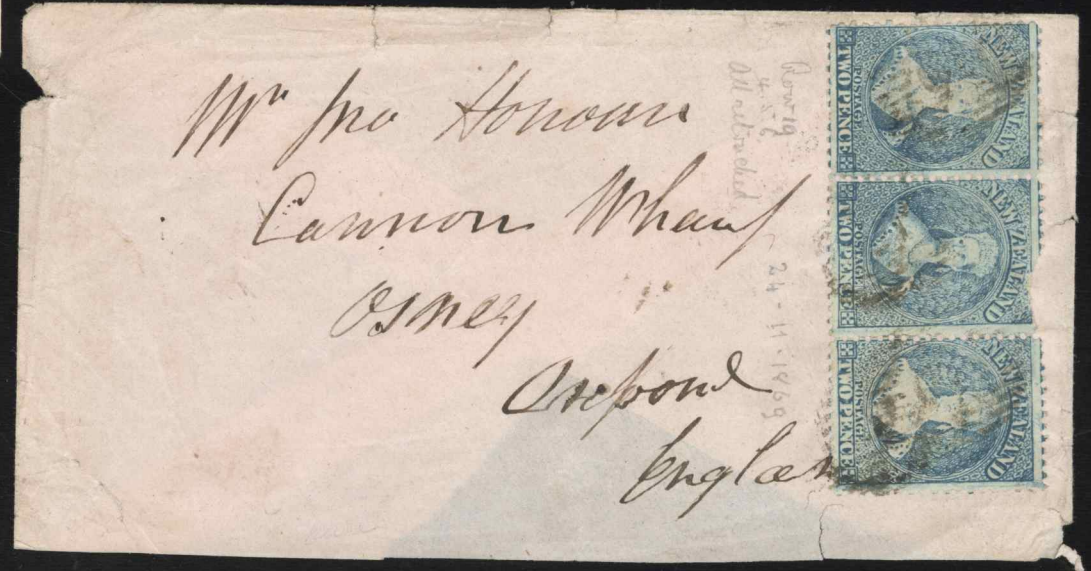 Mr Jno Honour
Cannon Wharf
Osney
Oxford
England
Row 19
4.5.6
All retouched
24-11-1869
NEW ZEALAND
POSTAGE
TWO PENCE
NEW ZEALAND
POSTAGE
TWO PENCE
NEW ZEALAND
POSTAGE
TWO PENCE